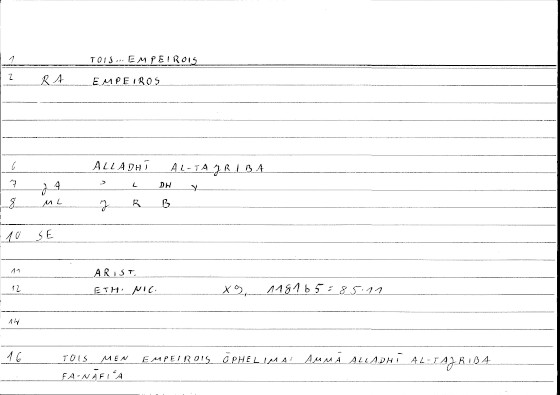 1 TOIS...EMPEIROIS
2 RA EMPEIROS
6 ALLADHĪ AL-TAJRIBA
7 JA ʾ L DH Y
8 ML J R B
10 SE
11 ARIST.
12 ETH. NIC. X9, 1181b5 = 85.11
14
16 TOIS MEN EMPEIROIS ŌPHELIMAI AMMĀ ALLADHĪ AL-TAJRIBA
FA-NĀFIʿA